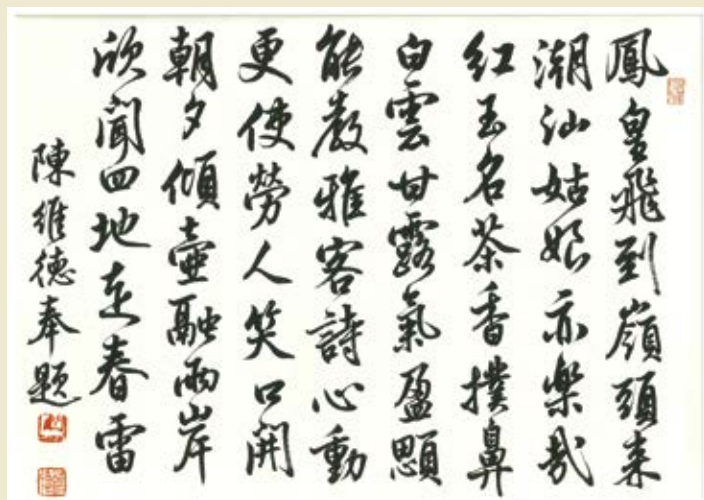 鳳皇飛到嶺頭来
潮汕姑娘亦樂哉
紅玉名茶香撲鼻
白雲甘露氣盈顋
能教雅客詩心動
更使勞人笑口開
朝夕傾壺融兩岸
欣聞四地走春雷
陳維德奉題